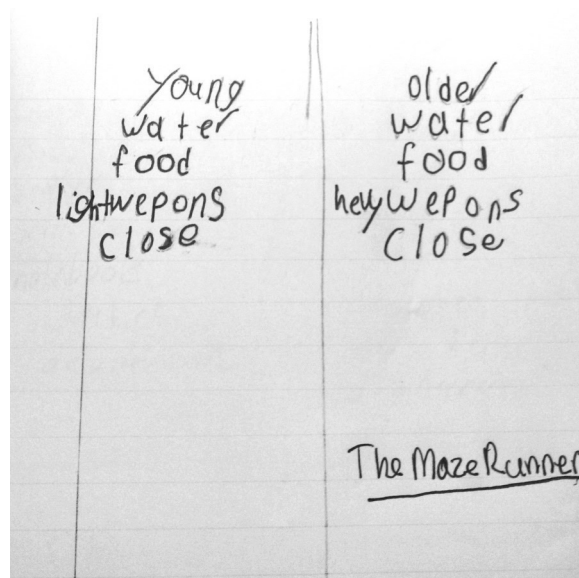 Young
water
food
lightwepons
close
older
water
food
hevywepons
Close
The Maze Runner